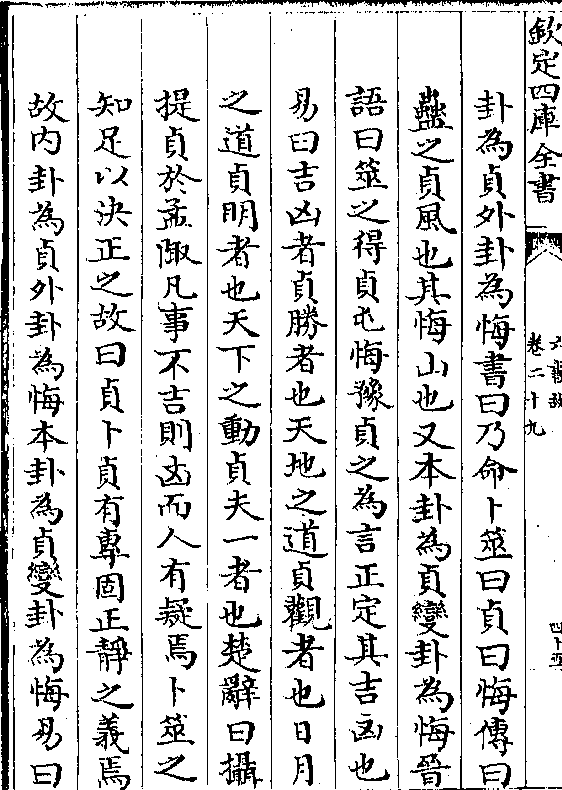 欽定四庫全書
卷二十九
卦為貞外卦為悔書曰乃命卜筮曰貞曰悔傳曰
蠱之貞風也其悔山也又本卦為貞變卦為悔晉
語曰筮之得貞屯悔豫貞之為言正定其吉凶也
易曰吉凶者貞勝者也天地之道貞觀者也日月
之道貞明者也天下之動貞夫一者也楚辭曰攝
提貞於孟陬凡事不吉則凶而人有疑焉卜筮之
知足以決正之故曰貞卜貞有專固正靜之義焉
故内卦為貞外卦為悔本卦為貞變卦為悔易曰